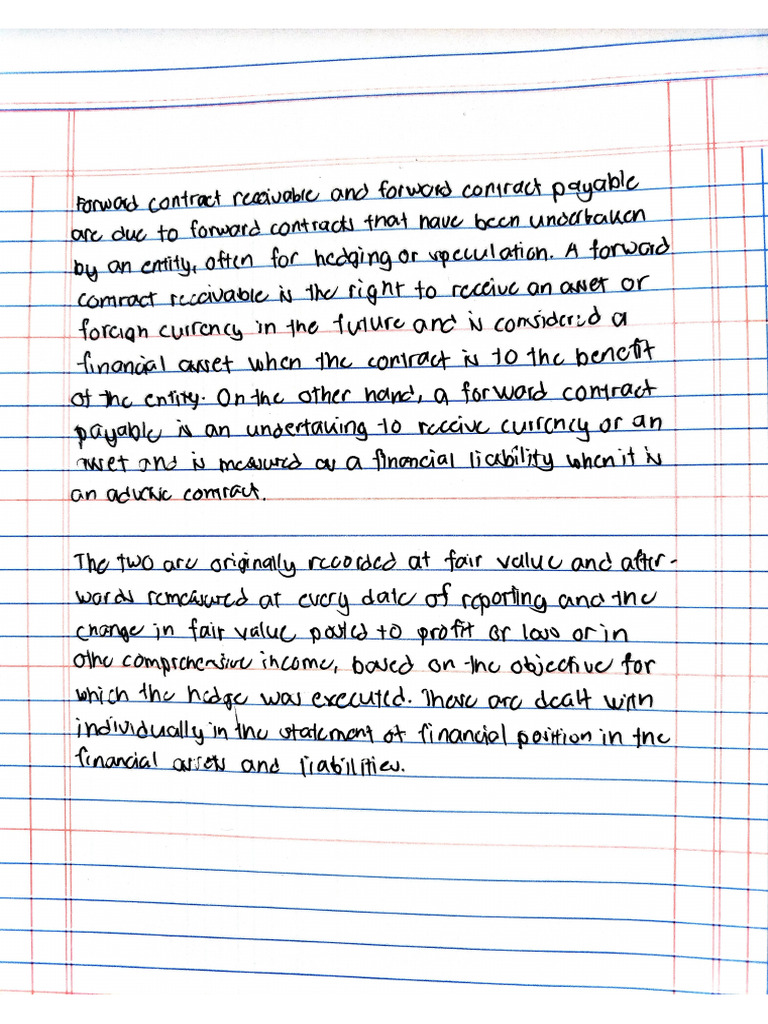 Forward contract receivable and forward contract payable
are due to forward contracts that have been undertaken
by an entity, often for hedging or speculation. A forward
contract receivable is the right to receive an asset or
foreign currency in the future and is considered a
financial asset when the contract is to the benefit
of the entity. On the other hand, a forward contract
payable is an undertaking to receive currency or an
asset and is measured as a financial liability when it is
an contract.
The two are originally recorded at fair value and after-
wards remeasured at every date of reporting and the
change in fair value posted to profit or loss or in
othe comprehensive income, based on the objective for
which the hedge was executed. These are dealt with
individually in the statement of financial position in the
financial assets and liabilities.